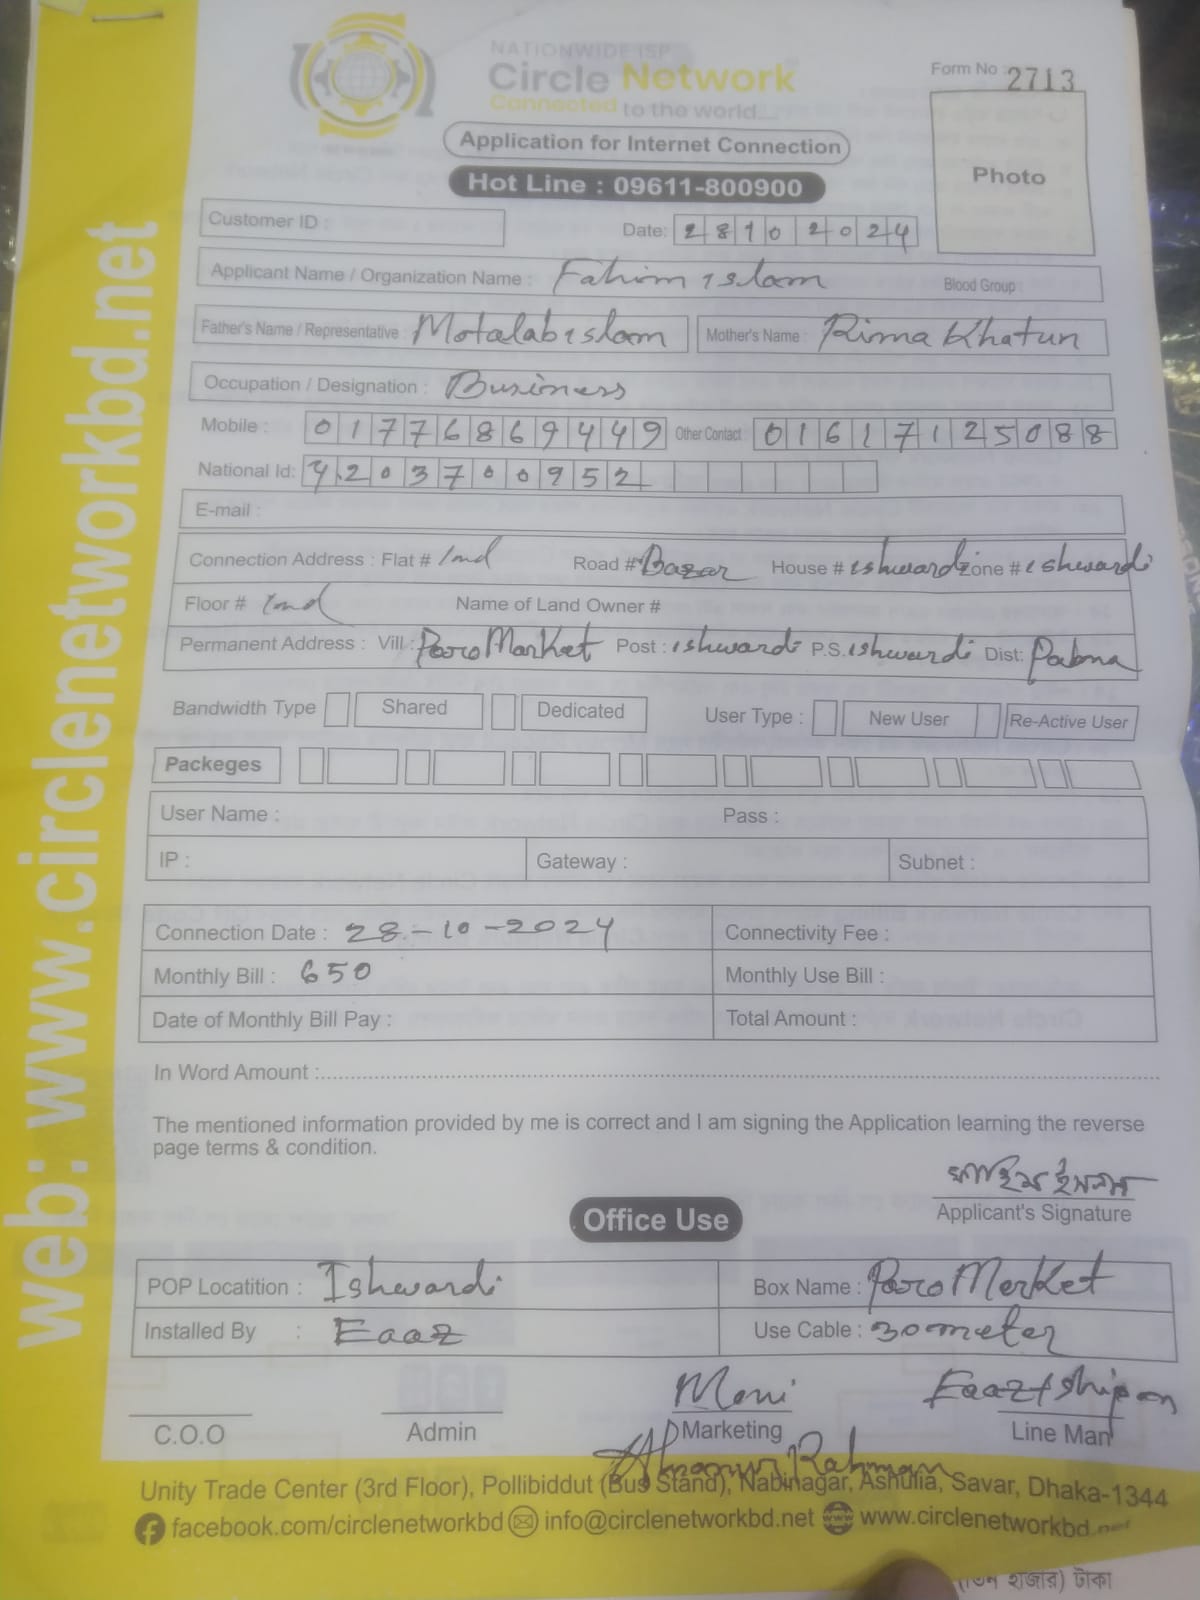 NATIONWIDE ISP
Circle Network
Connected to the world...
Form No : 2713
Application for Internet Connection
Photo
Hot Line : 09611-800900
Customer ID :
Date: 28102024
Applicant Name / Organization Name : Fahim islam Blood Group :
Father's Name / Representative : Motalab islam Mother's Name : Rima Khatun
Occupation / Designation : Business
Mobile : 01776869449 Other Contact : 01617125088
National Id: 4203700952
E-mail :
Connection Address : Flat # Road # Bazar House # ishwardi Zone # ishwardi
Floor # Name of Land Owner #
Permanent Address : Vill : Poro Market Post : ishwardi P.S. ishwardi Dist: Pabna
Bandwidth Type Shared Dedicated User Type : New User Re-Active User
Packeges
User Name : Pass :
IP : Gateway : Subnet :
Connection Date : 28-10-2024 Connectivity Fee :
Monthly Bill : 650 Monthly Use Bill :
Date of Monthly Bill Pay : Total Amount :
In Word Amount :
The mentioned information provided by me is correct and I am signing the Application learning the reverse
page terms & condition.
ফাহিম ইসলাম
Applicant's Signature
Office Use
POP Locatition : Ishwardi Box Name : Poro Merket
Installed By : Eaaz Use Cable : 30 meter
Moni Eaaz + Shipon
C.O.O Admin Marketing Line Man
Rahman
Unity Trade Center (3rd Floor), Pollibiddut (Bus Stand), Nabinagar, Ashulia, Savar, Dhaka-1344
facebook.com/circlenetworkbd info@circlenetworkbd.net www.circlenetworkbd.net
web: www.circlenetworkbd.net
হাজার) টাকা